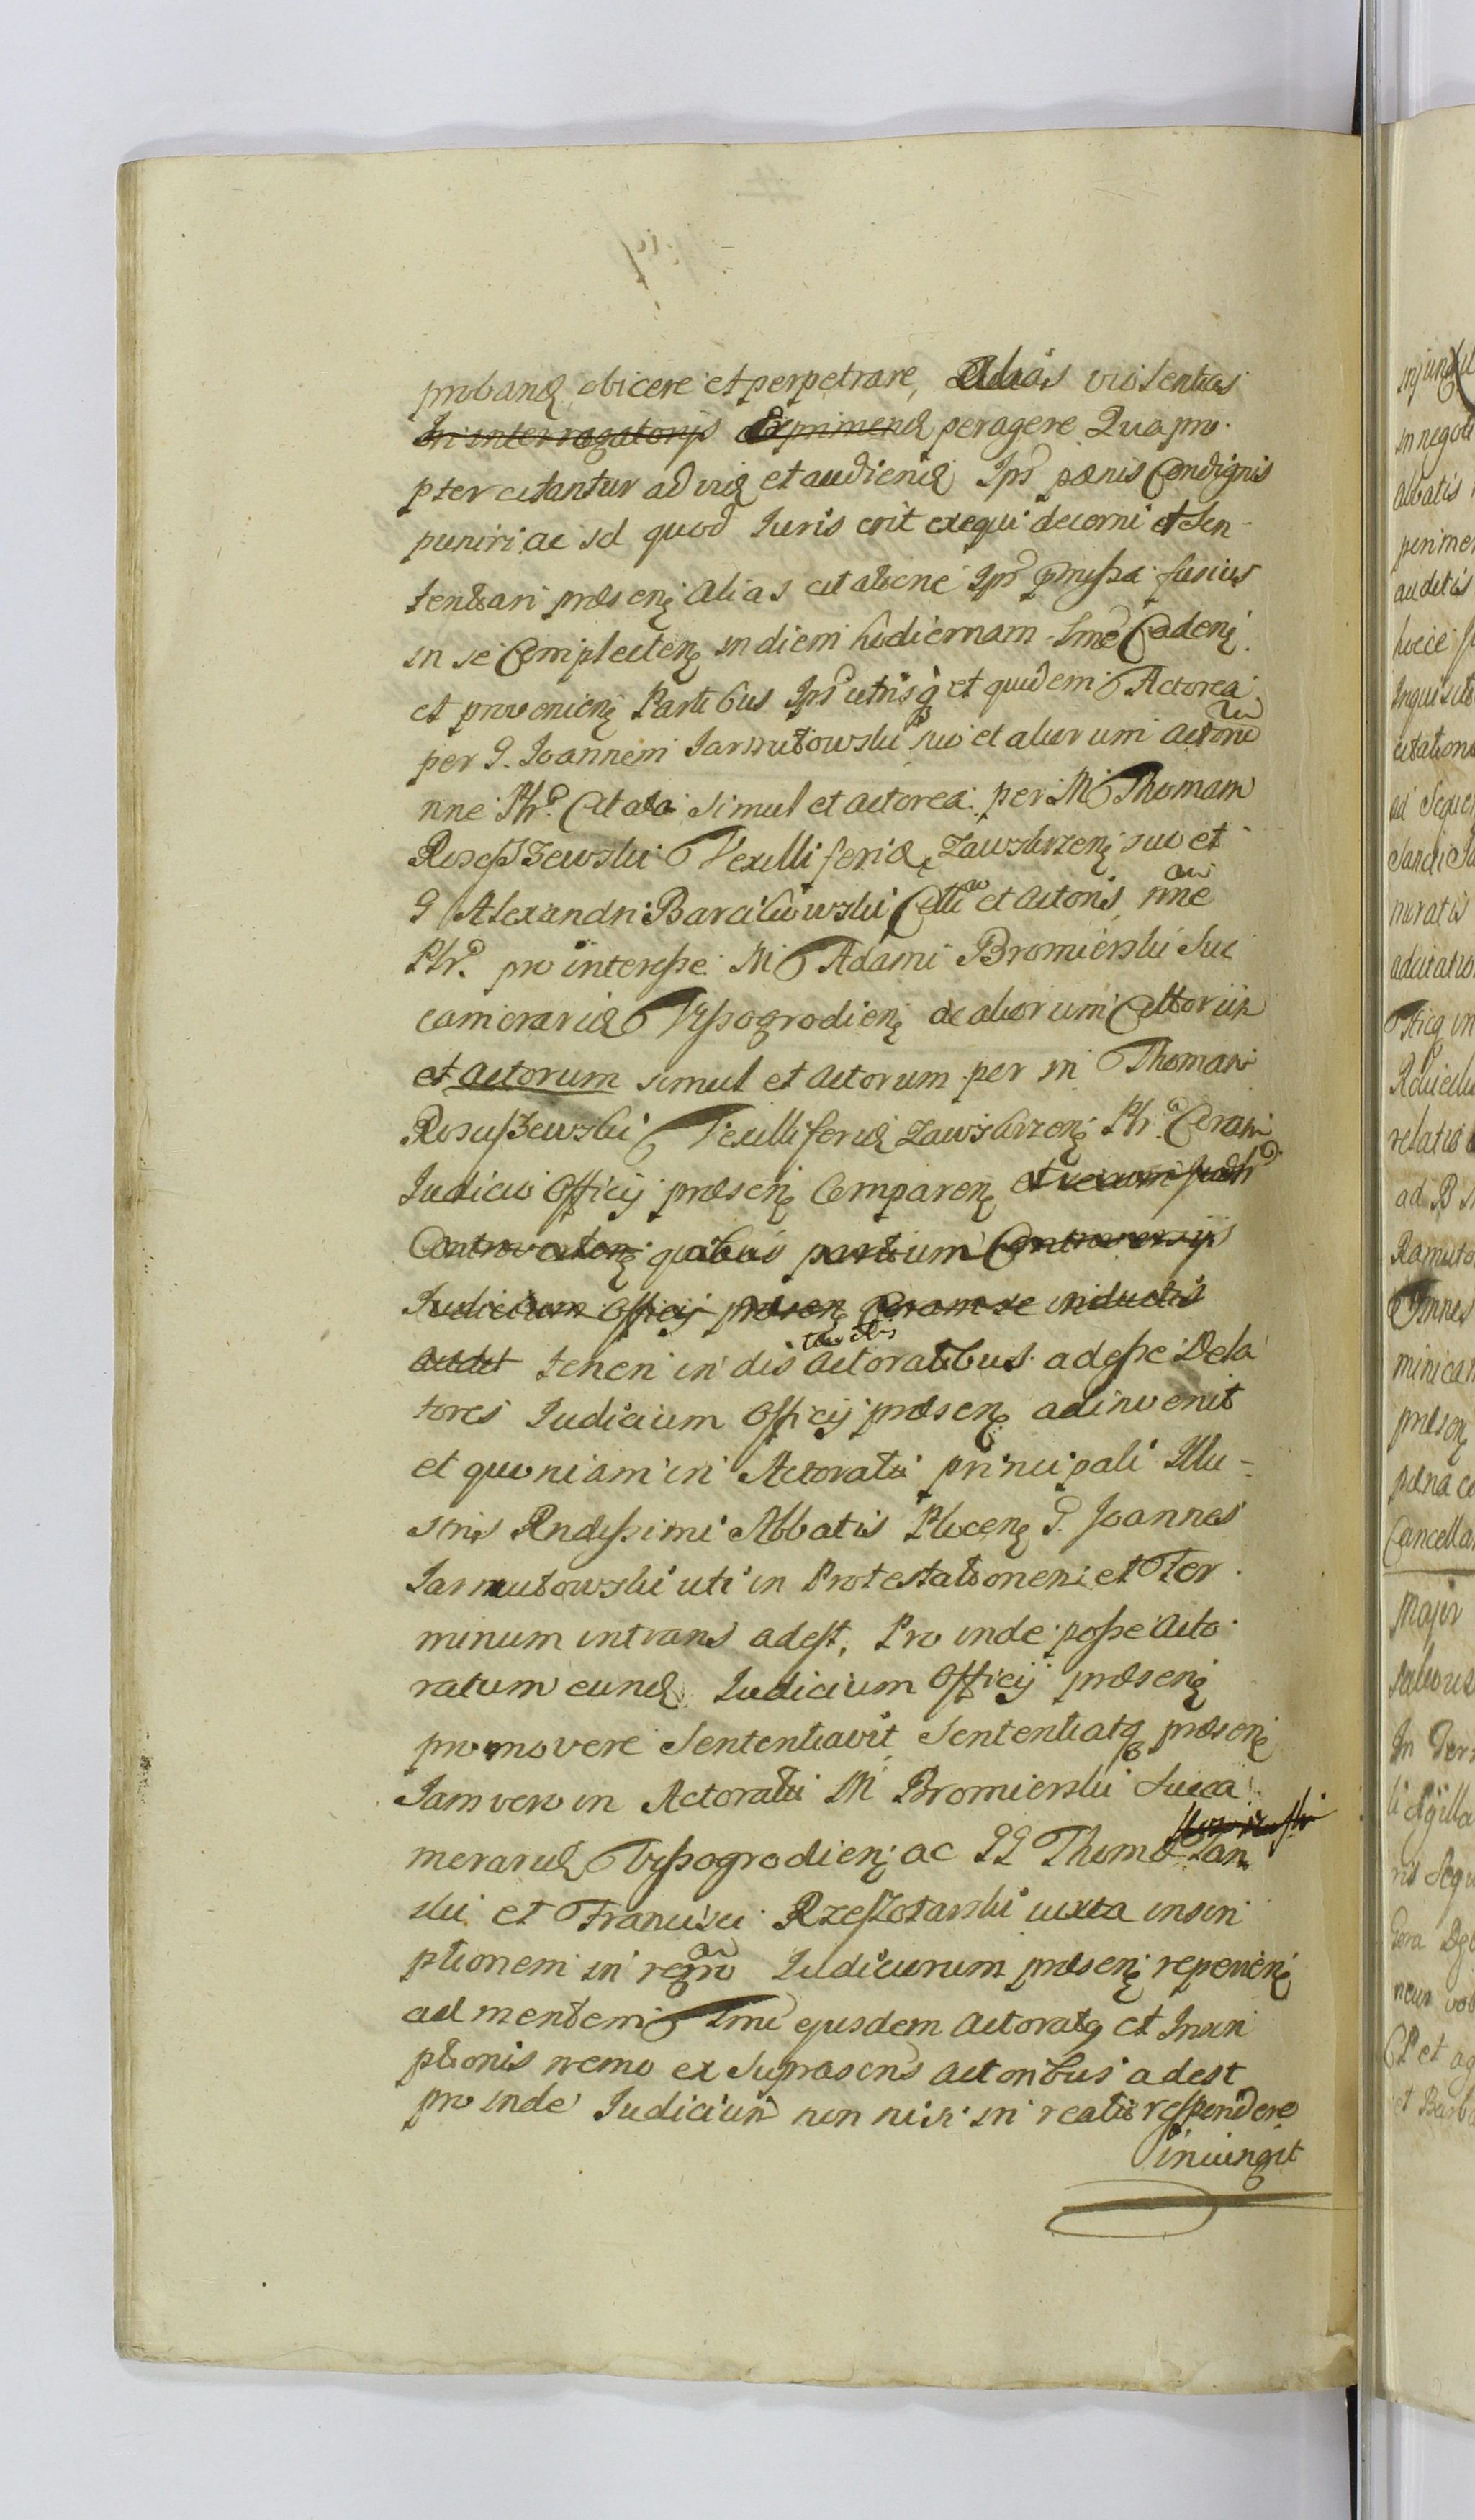 probanđ obicere et perpetrare, Alias violentias
In interrogatorijs Exprimenđ peragere Quapro-
pter citantur ad viđ et audienđ Ips pænis Condignis
puniri ac id quod Iuris erit exequi decerni et Sen-
tentiari præsenę alias citatione Ips pmissa fusius
in se Complectenę in diem hodiernam Tme Cadenę
et provenienę Partibus Ips utrisq et quidem Actorea
per G. Joannem Jarnutowski suo et aliorum Actorum
nne Phr. Citata simul et actorea per M Thomam
Roseszewski Vexilliferiđ Zawskrzenę suo et
G Alexandri Barcikowski et Actoris nne
Phr. pro interesse M Adami Bromierski Suc
camerariđ Wyssogrodienę ac aliorum
et actorum simul et Actorum per M Thomam
Rosuszewski Vexilliferiđ Zawskrzenę Phr. Coram
Iudicio Officij præsenę Comparenę et
Controvertenę quibus partium Controversijs
Iudicium Officij præsenę Coram se inductis
audit teneri in dis Actoratibus adesse Dela
tores Iudicium Officij præsenę adinvenit
et quoniam in Actoratu principali Illu-
stris Rndissimi Abbatis Plocenę G. Joannes
Jarnutowski uti in Protestationem et Ter
minum intrans adest, Pro inde posse Acto
ratum eunđ Iudicium Officij præsenę
promovere Sententiavit Sententiatq præsenę
Iam vero in Actoratu M Bromierski Succa
merariđ Wyssogrodienę ac GG Thomæ Lan
ski et Francisci Rzeszotarski iuxta inscri
ptionem in regro Iudiciorum præsenę reperienę
ad mentem Tmi ejusdem Actoratq et Inscri
ptionis nemo ex Suprascris actoribus adest
pro inde Iudicium non nisi in reatu respondere
iniungit